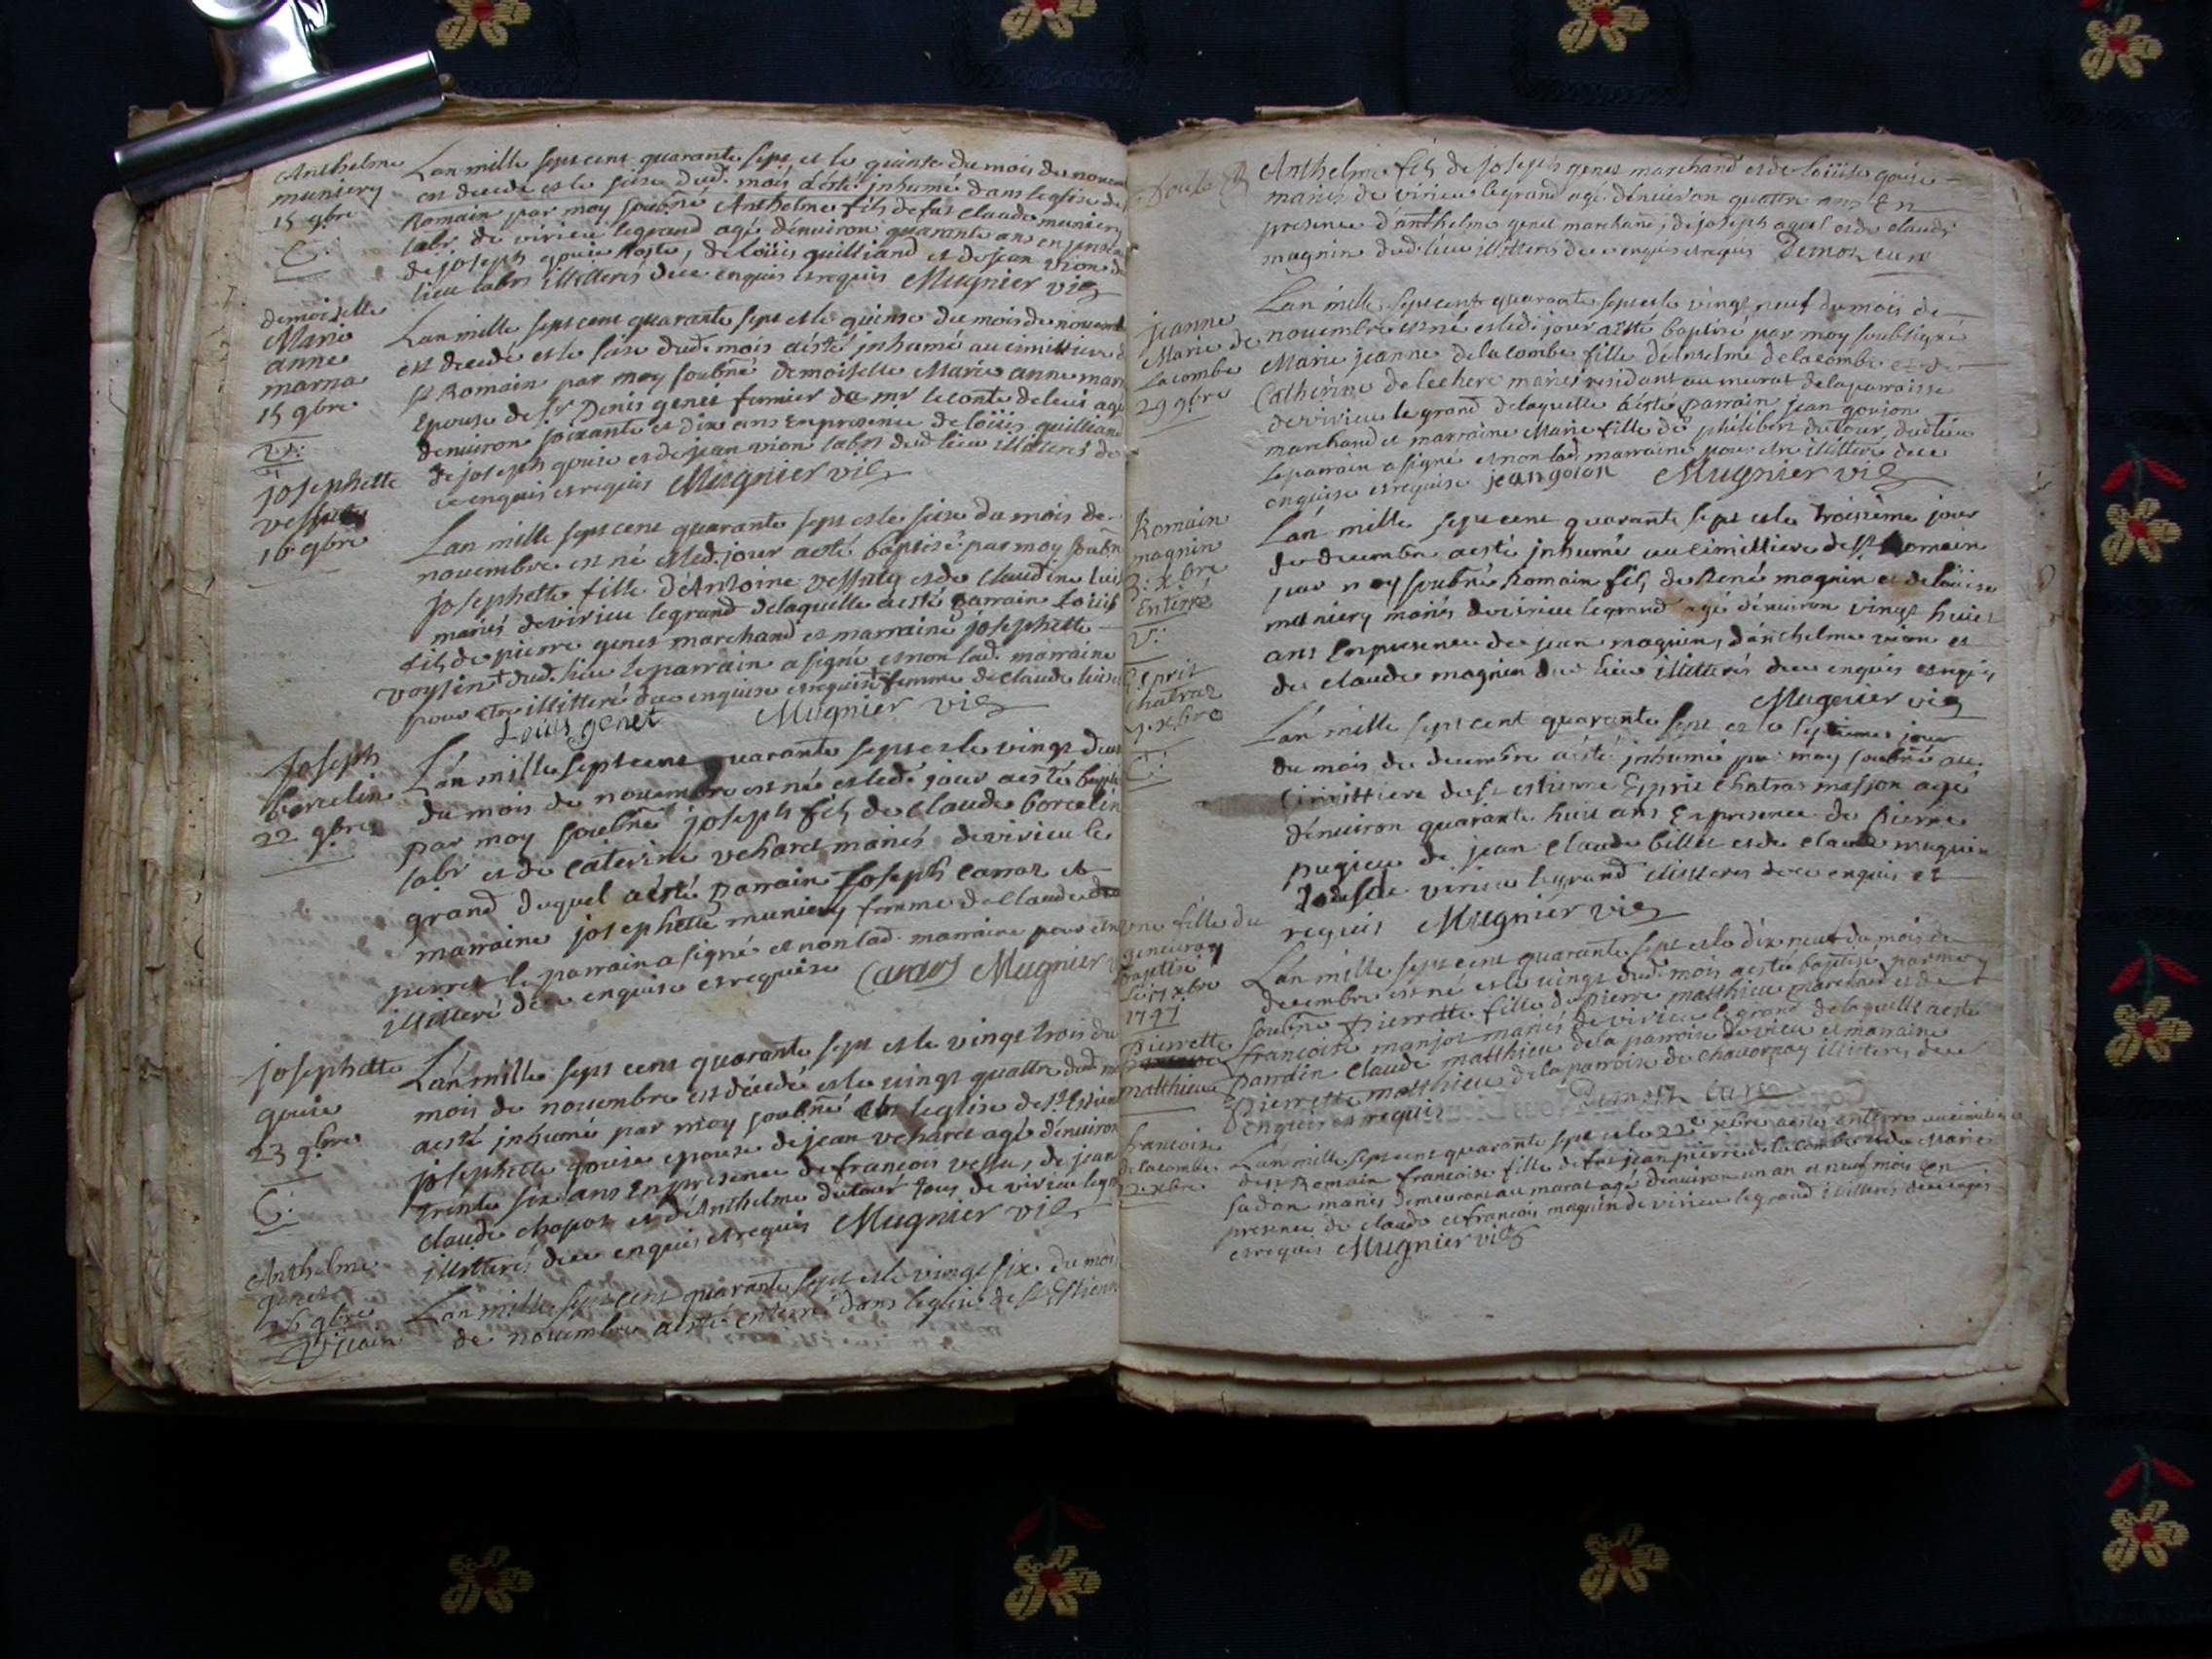 Anthelme
muniery
15 9bre
C:
Lan mille sept cent quarante sept et le quinse du mois de novem
est decedé et le seise dud. mois a esté inhumé dans leglise de
Romain par moy soubné Anthelme fils de fut Claude muniery
labr de virieu legrand agé denuiron quarante ans en presence
de joseph gouie hoste, de loüis quilliand et de jean vion du
lieu labrs illitterés de ce enquis et requis Mugnier vic
demoiselle
Marie
anne
marna
15 9bre
V:
Lan mille sept cent quarante sept et le quinse du mois de novemb
est decedé et le seise dud. mois a esté inhumé au cimittiere d
st Romain par moy soubné demoiselle Marie anne marn
Epouse de sr Denis genet fermier de mr le conte de agé
denuiron soixante et dix ans En presence de loüis quilliand
de joseph gouie et de jean vion labrs dud. lieu illiterés de
ce enquis et requis Mugnier vic
josephette
vessuty
16 9bre
Lan mille sept cent quarante sept et le seise du mois de
novembre est né et led. jour a esté baptisé par moy soubn
josephette fille d'Antoine vessuty et de Claudine luis
mariés de virieu legrand de laquelle a esté parrain Loüis
fils de pierre genet marchand et marraine josephette
voysin dud. lieu le parrain a signé et non lad. marraine
pour etre illitteré de ce enquise et requise femme de claude luis
Louis genet Mugnier vic
Joseph
borcelin
22 9bre
L'an mille sept cent quarante sept et le vingt deux
du mois de novembre est né et led. jour a esté baptis
par moy soubné joseph fils de Claude borcelin
labr et de Caterine vcharet mariés de virieu le
grand duquel a esté parrain Joseph Carraz et
marraine josephette muniery femme de Claude
perret le parrain a signé et non lad. marraine pour etre
illitteré de ce enquise et requise Carraz Mugnier v
josephette
gouie
23 9bre
C:
L'an mille sept cent quarante sept et le vingt trois du
mois de novembre est décedé et le vingt quattre dud. m
a esté inhumé par moy soubné leglise de st Estien
josephette gouie epouse de jean vcharet agé denuiron
trente six ans En presence de francois vessu, de jean
claude chapot et d'Anthelme dutour tous de virieu legr
illiterés de ce enquis et requis Mugnier vic
Anthelme
genet
26 9bre
Lan mille sept cent quarante sept et le vingt six du mois
de novembre a esté enterré dans leglise de st Estienne
Anthelme fils de joseph genet marchand et de loüise gouie
mariés de virieu legrand agé denuiron quattre ans En
presence d'anthelme genet marchand, de joseph et de claude
magnin dud. lieu illitterés de ce enquis et requis Demoz curé
jeanne
Marie de
Lacombe
29 9bre
Lan mille sept cent quarante sept et le vingt neuf du mois de
novembre est né et led. jour a esté baptisé par moy soubsigné
Marie jeanne delacombe fille d'Anselme delacombe et de
Catherine delechere mariés residant au murat de la parroisse
de virieu le grand de laquelle a esté parrain jean gojon
marchand et marraine Marie fille de philibert dutour dud. lieu
le parrain a signé et non lad. marraine pour etre illitteré de ce
enquise et requise jean gojon Mugnier vic
Romain
magnin
3: xbre
Enterré
V:
Lan mille sept cent quarante sept et le troisieme jour
de decembre a esté inhumé au cimittiere de st Romain
par moy soubné Romain fils de René magnin et de loüise
muniery mariés de virieu legrand agé denuiron vingt huict
ans En presence de jean magnin, d'anthelme vion et
de claude magnin dud lieu illitterés de ce enquis et requis
Mugnier vic
Esprit
chatraz
7. xbre
C:
L'an mille sept cent quarante sept et le septiemes jour
du mois de decembre a esté inhumé par moy soubné au
cimittiere de st estienne Esprit Chatras masson agé
denuiron quarante huit ans En presence de pierre
pugieu de jean Claude billet et de Claude magnin
virieu legrand illitteres de ce enquis et
requis Mugnier vic
une fille du
baptisé
xbre
1747
pierrette
matthieu
Lan mille sept cent quarante sept et le dix neuf du mois de
decembre est né et le vingt dud. mois a esté baptisé par moy
soubné Pierrette fille de pierre matthieu marchand et de
francoise manjot mariés de virieu legrand de laquelle a esté
parrain Claude matthieu de la parroise de vieu et marraine
Pierrette matthieu de la parroise de chavornay illitteres de ce
enquis et requis Demoz curé
francoise
delacombe
22. xbre
Lan mille sept cent quarante sept et le 22e xbre a esté enterré au cimitiere
de st Romain francoise fille de fut jean pierre delacombe et de Marie
sadon mariés demeurant au murat agé denuiron un an et neuf mois En
presence de claude et francois magnin de virieu legrand illitterés de ce enquis
et requis Mugnier vic